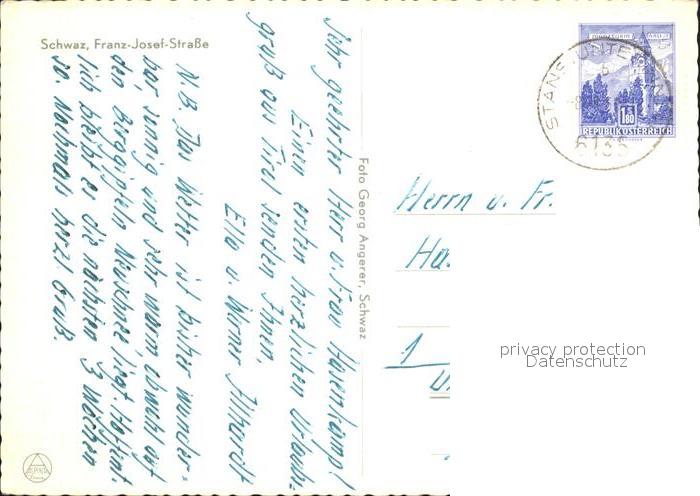 Schwaz, Franz-Josef-Straße
Sehr geehrter Herr u. Frau
Einen ersten herzlichen Urlaubs-
gruß aus Tirol senden Ihnen,
Ella u. Werner
N.B. Das Wetter ist bisher wunder-
bar sonnig und sehr warm, obwohl auf
den Berggipfeln Neuschnee liegt. Hoffent-
lich bleibt es die nächsten 3 Wochen
so. Nochmals herzl. Gruß.
Foto Georg Angerer, Schwaz
REPUBLIK ÖSTERREICH
1.80
STANS
6135
Herrn u. Fr.
Ha
1
privacy protection
Datenschutz